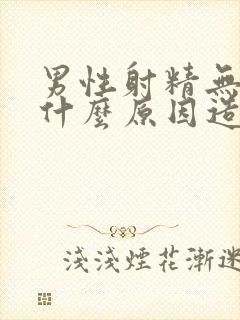 男性射精無
什麼原因造
淺淺煙花漸迷